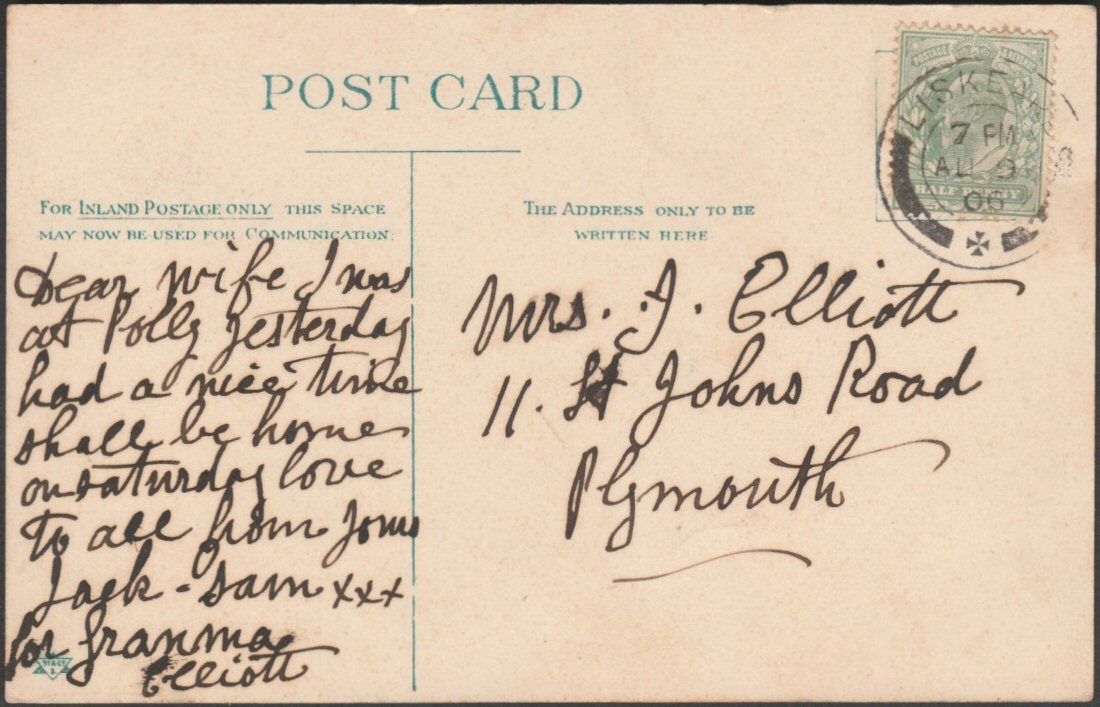 POST CARD
FOR INLAND POSTAGE ONLY THIS SPACE
MAY NOW BE USED FOR COMMUNICATION.
THE ADDRESS ONLY TO BE
WRITTEN HERE
POSTAGE
HALF PENNY
LISKEARD
7 PM
AU 9
06
Dear wife I was
at Polly yesterday
had a nice time
shall be home
on saturday love
to all from
Jack - Sam xxx
for granma
Elliott
Mrs. J. Elliott
11. St Johns Road
Plymouth